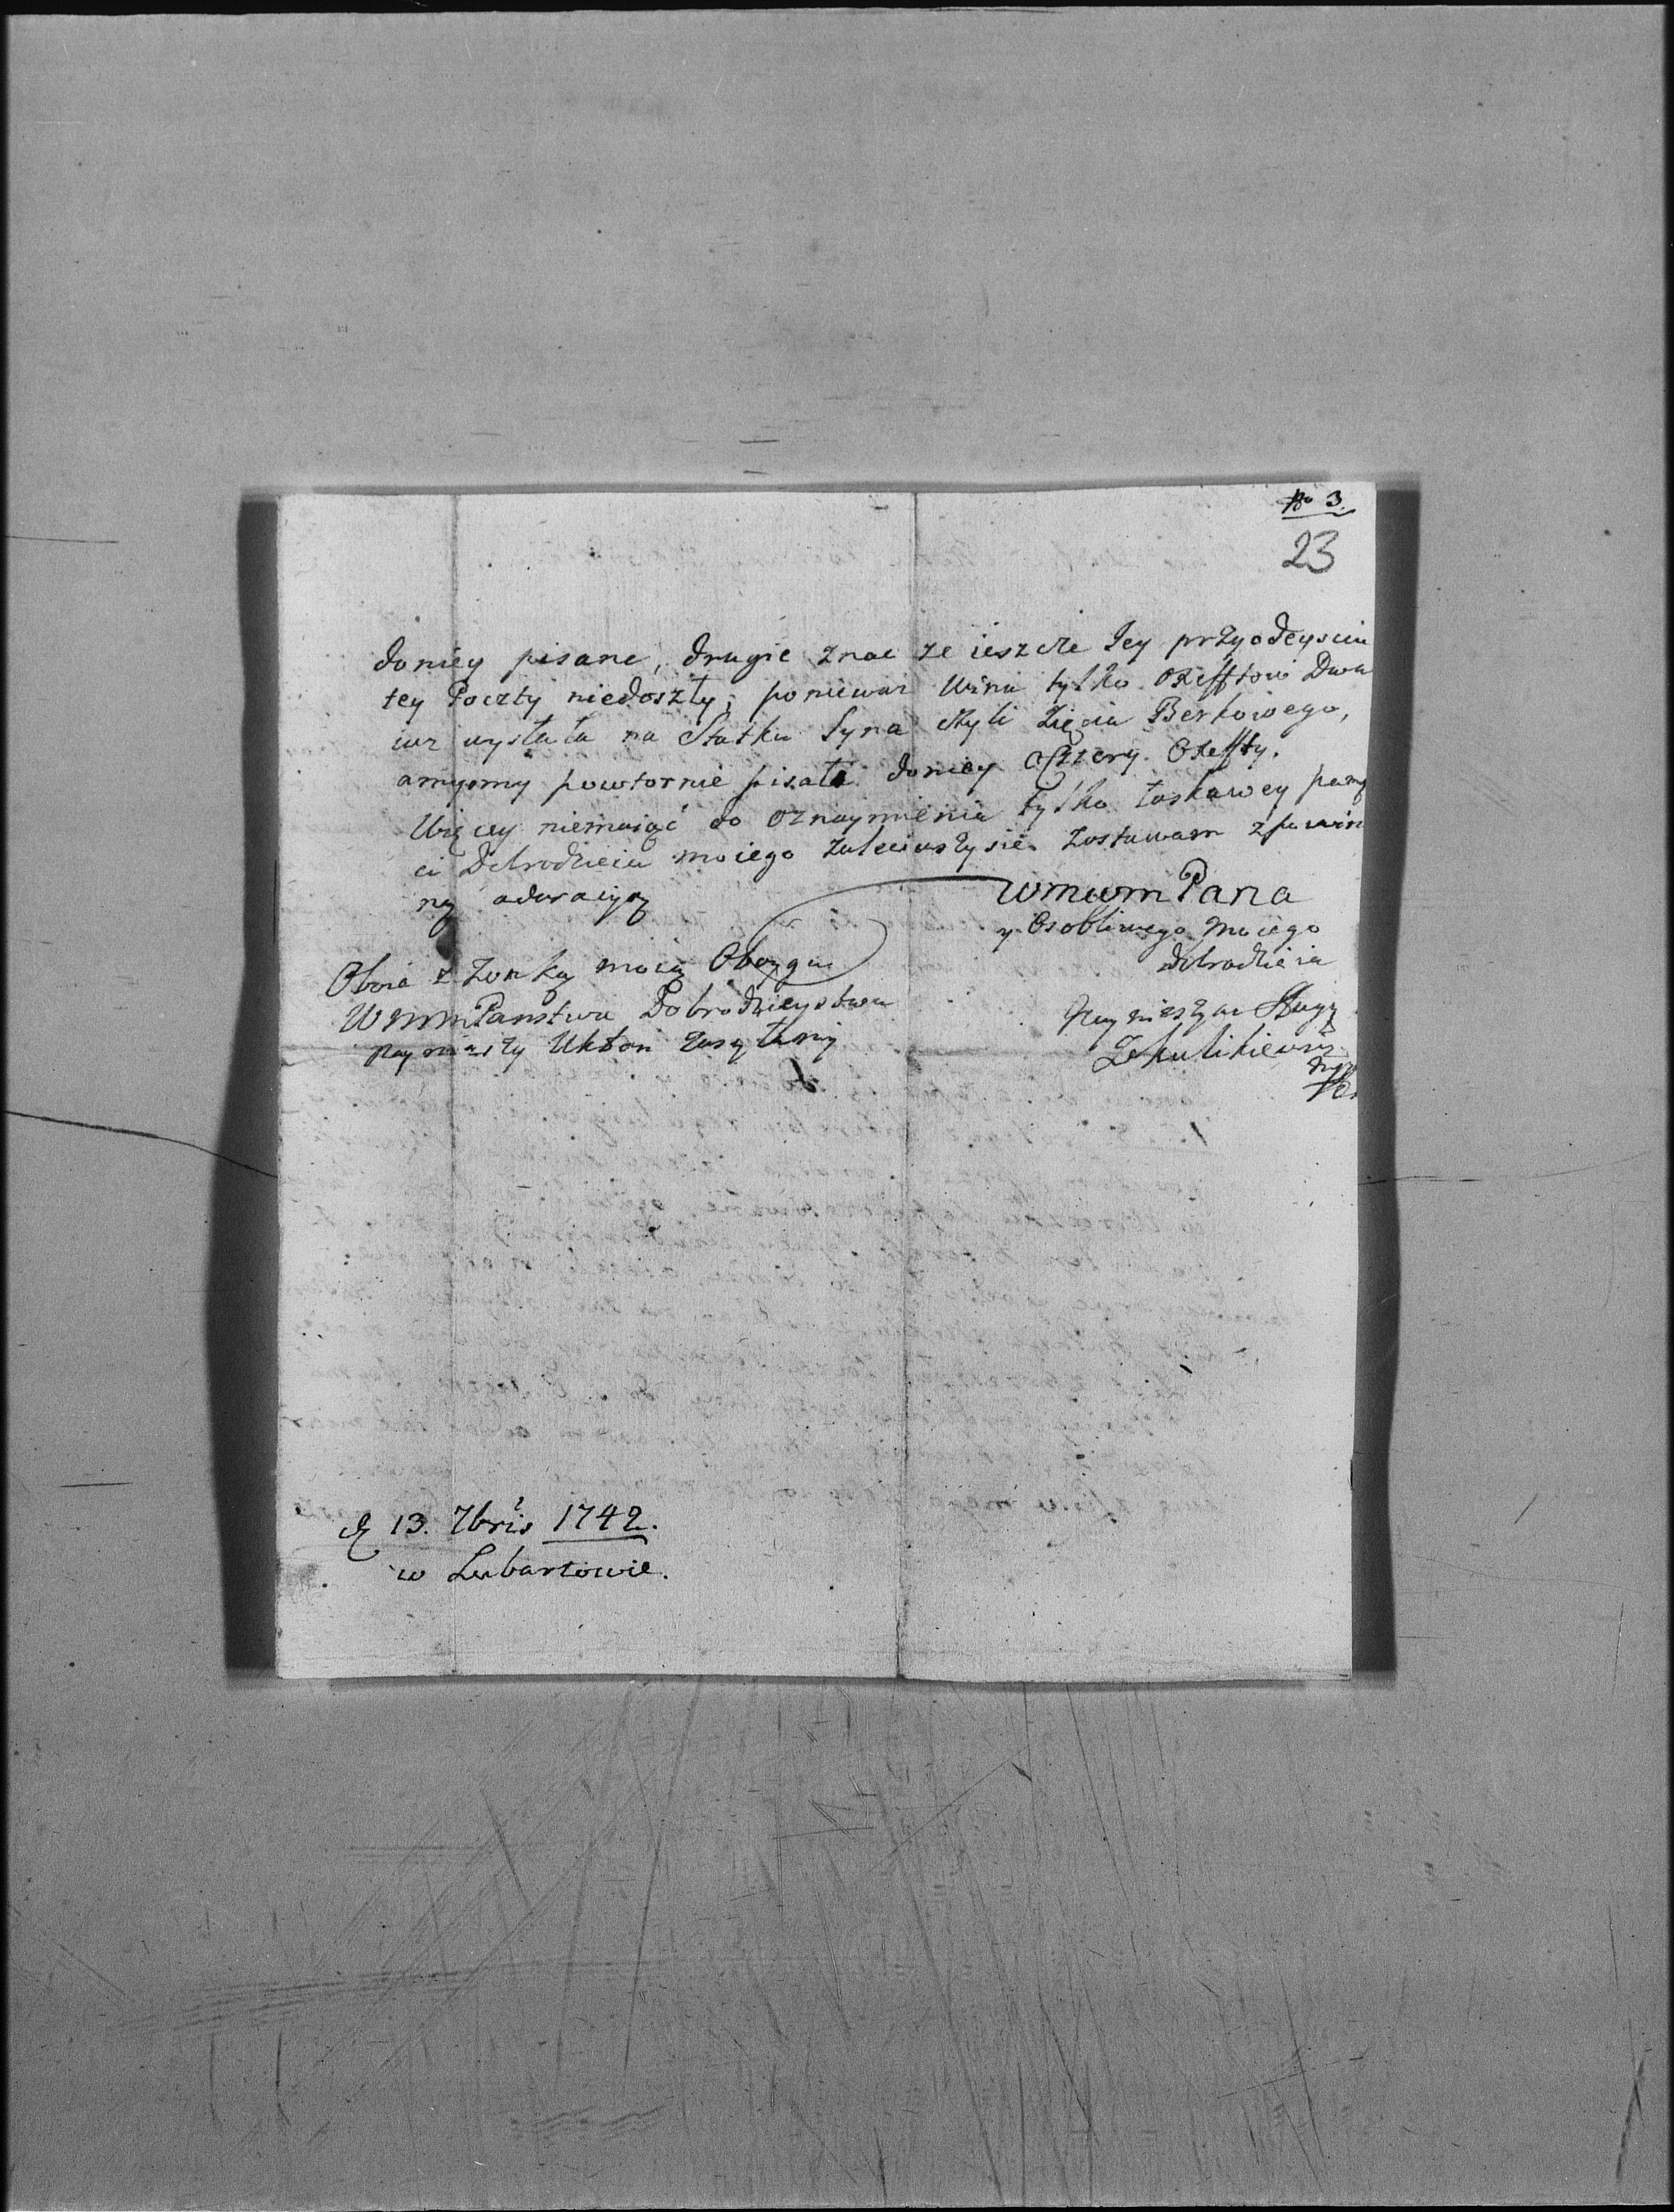 No 3.
23
doniey pisane, drugie znac ze ieszcze Jey przyodeysciu
tey Poczty niedoszły, poniewaz Wina tylko oxefftow Dwa
iuz wysłała na Statku Syna czyli Zięcia Berkowego,
amysmy powtornie pisali doniey cztery Oxeffty.
Więcey niemaiąć do oznaymienia tylko łaskawey pamię
ci Dobrodzieia moiego zaleciwszysie zostawam zpowin
ną adoracyą
WmmPana
y Osobliwego Moiego
Dobrodzieia
Oboie z Zonką moią Oboyga
WmmPanstwu Dobrodzieystwu
naynizszy Ukłon zasyłamy
Naynizszym Sługą
d 13. 7bris 1742.
w Lubartowie.